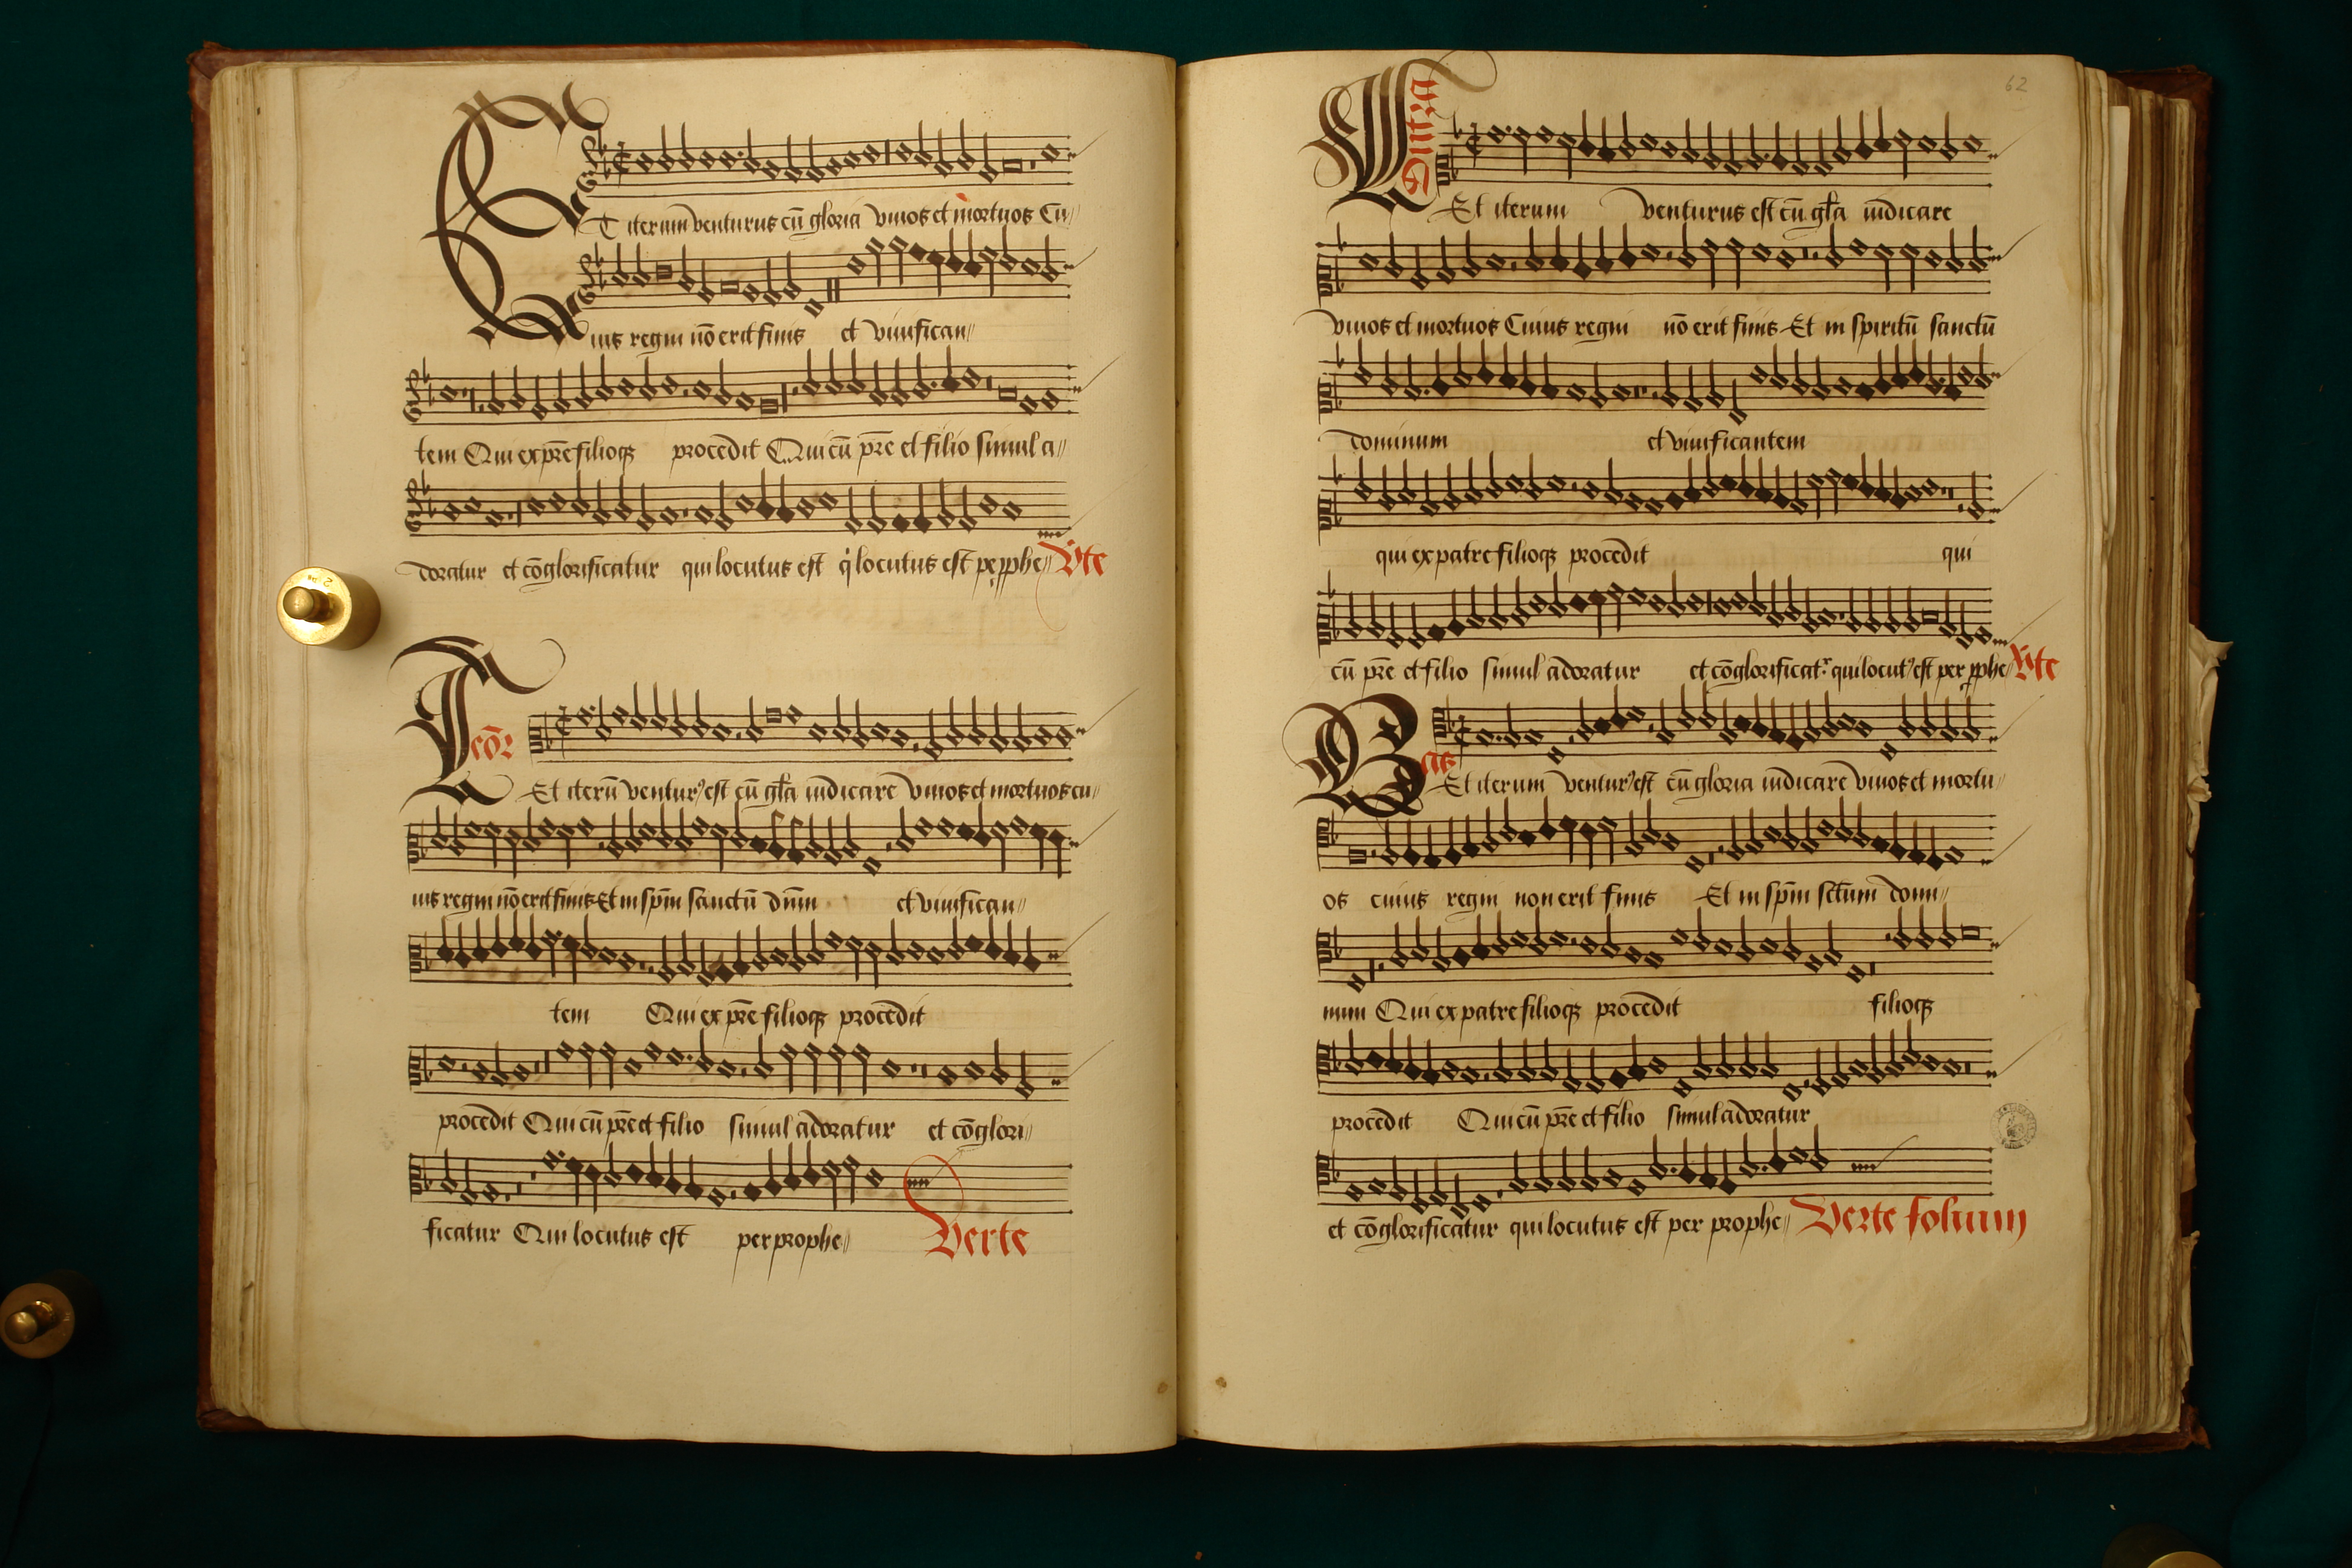 ET iterum venturus cū gloria vivos et mortuos Cu//
ius regni nō erit finis et vivifican//
tem Qui ex pr̄e filioqȝ procedit Qui cū pr̄e et filio simul a//
doratur et cōglorificatur qui locutus est q̇ locutus est pe pphe// V̇te
Teōr
Et iterū ventur⁹ est cū gl̄a iudicare vivos et mortuos cu//
ius regni nō erit finis Et in sp̄m sanctū dn̄m et vivifican//
tem Qui ex pr̄e filioqȝ procedit
procedit Qui cū pr̄e et filio simul adoratur et cōglori//
ficatur Qui locutus est per prophe// Verte
62
Contra
Et iterum venturus est cū gl̄a iudicare
vivos et mortuos Cuius regni nō erit finis Et in spiritū sanctū
dominum et vivificantem
qui ex patre filioqȝ procedit qui
cū pr̄e et filio simul adoratur et cōglorificat᷑ qui locut⁹ est per pphe// V̇te
Bas
Et iterum ventur⁹ est cū gloria iudicare vivos et mortu//
os cuius regni non erit finis Et in sp̄m sctum domi//
num Qui ex patre filioqȝ procedit filioqȝ
procedit Qui cū pr̄e et filio simul adoratur
et cōglorificatur qui locutus est per prophe// Verte folium